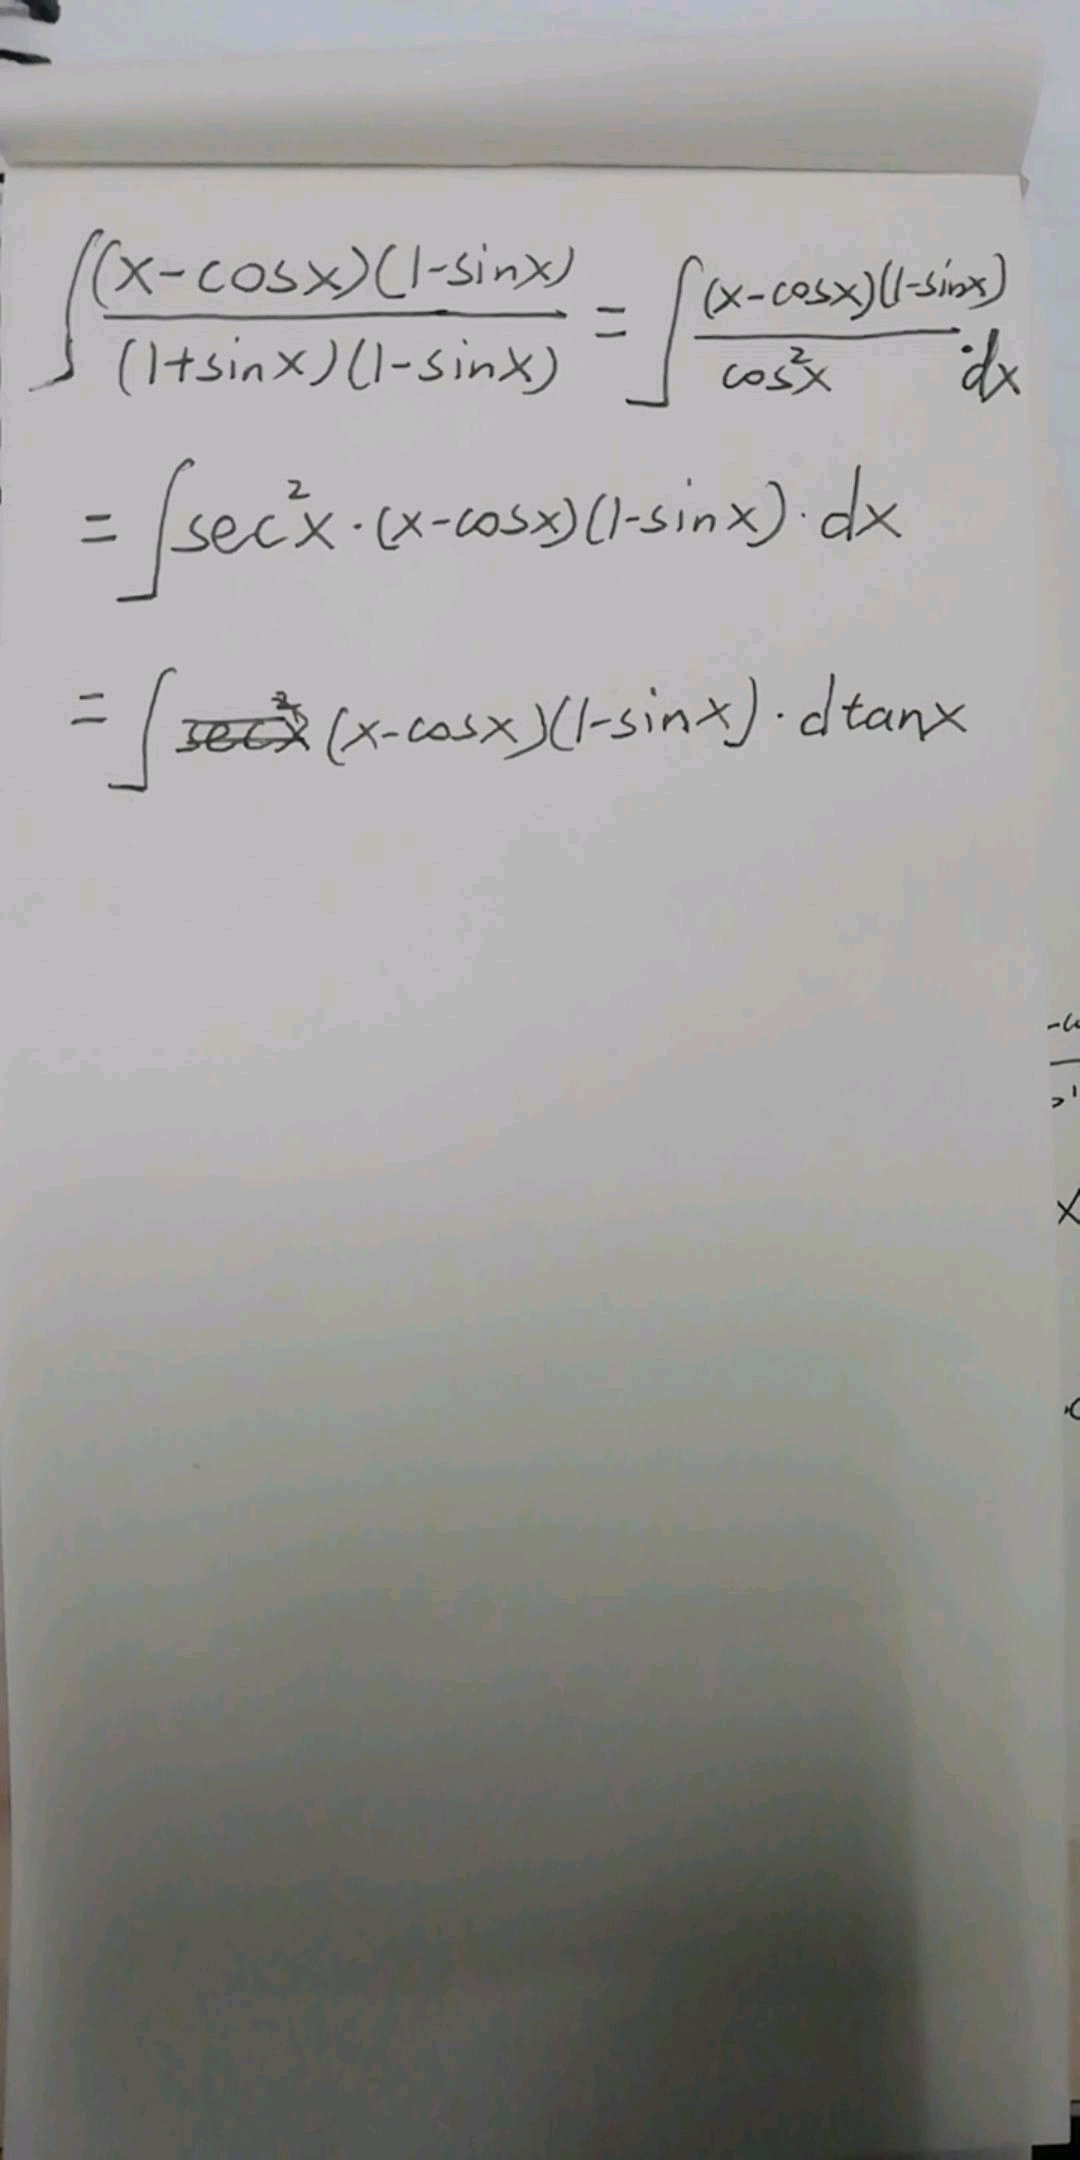 ∫ (x-cosx)(1-sinx) / (1+sinx)(1-sinx) = ∫ (x-cosx)(1-sinx) / cos²x · dx
= ∫ sec²x · (x-cosx)(1-sinx) · dx
= ∫ (x-cosx)(1-sinx) · dtanx